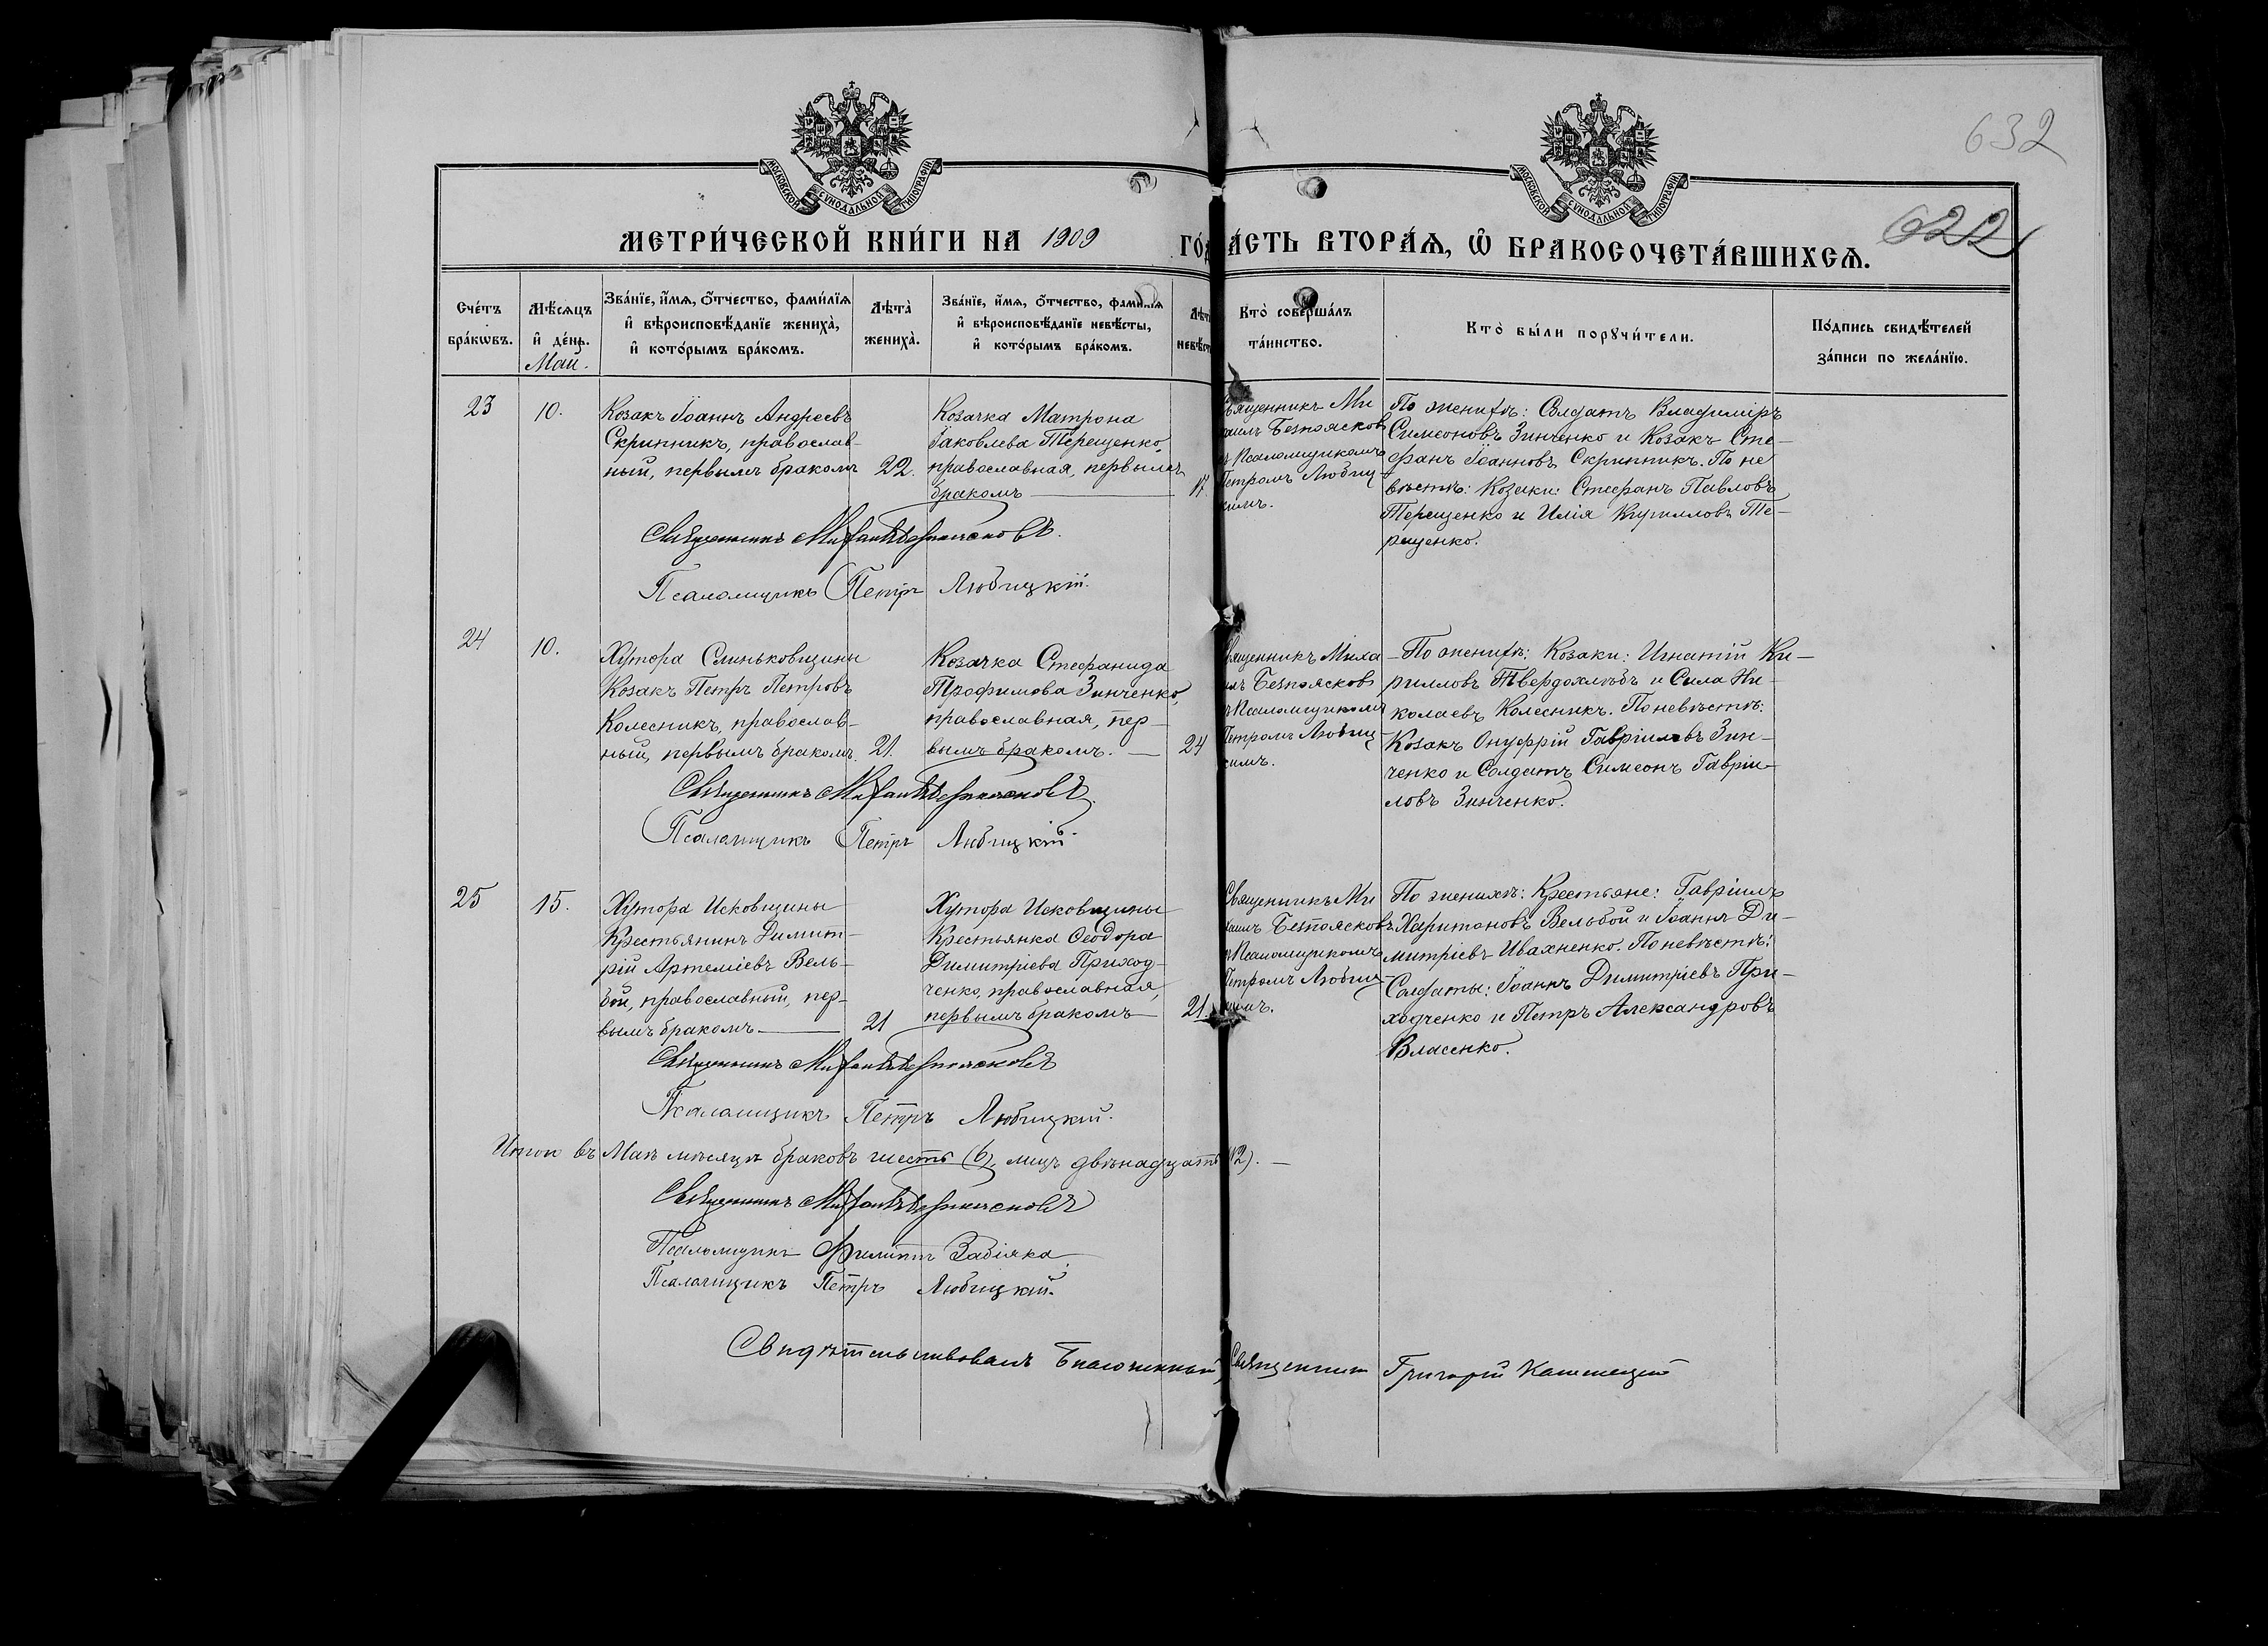 632
МОСКОВСКОЙ СѴНОДАЛЬНОЙ ТИПОГРАФІИ
МОСКОВСКОЙ СѴНОДАЛЬНОЙ ТИПОГРАФІИ
622
МЕТРИ́ЧЕСКОЙ КНИ́ГИ НА 1909
ГО́Д
А́СТЬ ВТОРА́Ѧ, Ѽ БРАКОСОЧЕТА́ВШИХСѦ.
Сче́тъ
бра́кѡвъ.
Мѣ́сѧцъ
и҆ де́нь.
Май.
Зва́нїе, и҆́мѧ, ѻ҆́тчество, фами́лїѧ
и҆ вѣроисповѣ́данїе жениха̀,
и҆ кото́рымъ бра́комъ.
Лѣ́та̀
жениха̀.
Зва́нїе, и҆́мѧ, ѻ҆́тчество, фами́лїѧ
и҆ вѣроисповѣ́данїе невѣ́сты,
и҆ кото́рымъ бра́комъ.
Лѣт
невѣст
Кто̀ соверша́лъ
та́инство.
Кто̀ бы́ли порꙋчи́тели.
По́дпись свидѣ́телей
за́писи по жела́нїю.
23
10.
Козакъ Іоаннъ Андреевъ
Скрипникъ, православ-
ный, первымъ бракомъ
22.
Козачка Матрона
Іаковлева Терещенко,
православная, первымъ
бракомъ
17.
Священникъ Ми
хаилъ Безпоясковъ
съ Псаломщикомъ
Петромъ Любиц-
кимъ.
По женихѣ: Солдатъ Владиміръ
Симеоновъ Зинченко и Козакъ Сте-
фанъ Іоанновъ Скрипникъ. По не
вѣстѣ: Козаки: Стефанъ Павловъ
Терещенко и Илія Кирилловъ Те-
рещенко.
Священникъ Михаилъ Безпоясковъ.
Псаломщикъ Петръ Любицкій.
24
10.
Хутора Слиньковщины
Козакъ Петръ Петровъ
Колесникъ, православ-
ный, первымъ бракомъ.
21.
Козачка Стефанида
Трофимова Зинченко,
православная, пер-
вымъ бракомъ.
24
Священникъ Миха
илъ Безпоясковъ
съ Псаломщикомъ
Петромъ Любиц-
кимъ.
По женихѣ: Козаки: Игнатій Ки-
рилловъ Твердохлѣбъ и Сила Ни-
колаевъ Колесникъ. По невѣстѣ:
Козакъ Онуфрій Гавріиловъ Зин-
ченко и Солдатъ Симеонъ Гавріи-
ловъ Зинченко.
Священникъ Михаилъ Безпоясковъ.
Псаломщикъ Петръ Любицкій.
25
15.
Хутора Исковщины
Крестьянинъ Димит-
рій Артеміевъ Вель-
бой, православный, пер-
вымъ бракомъ
21
Хутора Исковщины
Крестьянка Ѳеодора
Димитріева Приход-
ченко, православная,
первымъ бракомъ
21.
Священникъ Ми
хаилъ Безпоясковъ
съ Псаломщикомъ
Петромъ Любиц-
кимъ.
По женихѣ: Крестьяне: Гавріилъ
Харитоновъ Вельбой и Іоаннъ Ди-
митріевъ Ивахненко. По невѣстѣ:
Солдаты: Іоаннъ Димитріевъ При-
ходченко и Петръ Александровъ
Власенко.
Священникъ Михаилъ Безпоясковъ
Псаломщикъ Петръ Любицкій.
Итого въ Маѣ мѣсяцѣ браковъ шесть (6), лицъ двѣнадцать (12).
Священникъ Михаилъ Безпоясковъ
Псаломщикъ Филиппъ Забіяка
Псаломщикъ Петръ Любицкій.
Свидѣтельствовалъ Благочинный, Священникъ Григорій